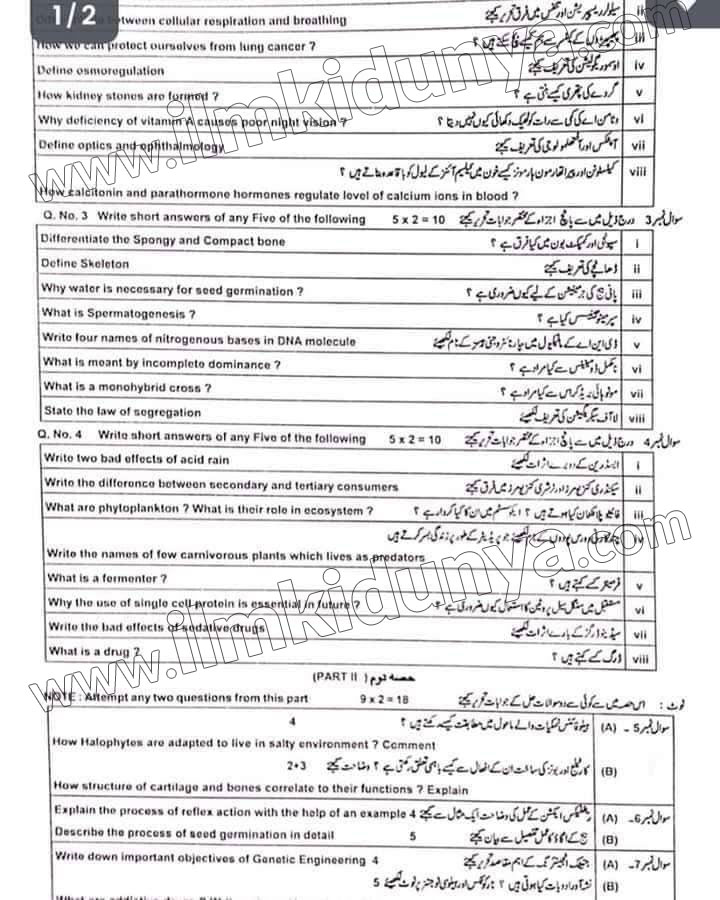 1/2
between cellular respiration and breathing سیلولر ریسپریشن اور تنفس میں فرق تحریر کیجئے ii
How we can protect ourselves from lung cancer ? iii
Define osmoregulation اوسموریگولیشن کی تعریف کیجئے iv
How kidney stones are formed ? گردے کی پتھری کیسے بنتی ہے ؟ v
Why deficiency of vitamin A causes poor night vision ? وٹامن اے کی کمی سے رات کو ٹھیک دکھائی کیوں نہیں دیتا ؟ vi
Define optics and ophthalmology vii
کیلسی ٹونن اور پیراتھارمون ہارمونز کیسے خون میں کیلشیم آئنز کے لیول کو باقاعدہ بناتے ہیں ؟ viii
How calcitonin and parathormone hormones regulate level of calcium ions in blood ?
Q. No. 3 Write short answers of any Five of the following 5 x 2 = 10 درج ذیل میں سے پانچ اجزاء کے مختصر جوابات تحریر کیجئے سوال نمبر 3
Differentiate the Spongy and Compact bone سپونجی اور کمپیکٹ بون میں کیا فرق ہے ؟ i
Define Skeleton ڈھانچے کی تعریف کیجئے ii
Why water is necessary for seed germination ? پانی بیج کی جرمینیشن کے لیے کیوں ضروری ہے ؟ iii
What is Spermatogenesis ? سپرمیٹوجینیسس کیا ہے ؟ iv
Write four names of nitrogenous bases in DNA molecule ڈی این اے کے مالیکیول میں چار نائٹروجنی بیسز کے نام لکھیئے v
What is meant by incomplete dominance ? نامکمل ڈومیننس سے کیا مراد ہے ؟ vi
What is a monohybrid cross ? مونوہائبرڈ کراس سے کیا مراد ہے ؟ vii
State the law of segregation لاء آف سیگریگیشن کی تعریف لکھیئے viii
Q. No. 4 Write short answers of any Five of the following 5 x 2 = 10 درج ذیل میں سے پانچ اجزاء کے مختصر جوابات تحریر کیجئے سوال نمبر 4
Write two bad effects of acid rain ایسڈ رین کے دو برے اثرات لکھیئے i
Write the difference between secondary and tertiary consumers سیکنڈری کنزیومرز اور ٹرشری کنزیومرز میں فرق لکھیئے ii
What are phytoplankton ? What is their role in ecosystem ? فائیٹوپلانکٹان کیا ہوتے ہیں ؟ ایکوسسٹم میں ان کا کیا کردار ہے ؟ iii
iv
Write the names of few carnivorous plants which lives as predators
What is a fermenter ? فرمینٹر کسے کہتے ہیں ؟ v
Why the use of single cell protein is essential in future ? مستقبل میں سنگل سیل پروٹین کا استعمال کیوں ضروری ہے ؟ vi
Write the bad effects of sedative drugs سیڈیٹو ڈرگز کے برے اثرات لکھیئے vii
What is a drug ? ڈرگ کسے کہتے ہیں ؟ viii
(PART II ) حصہ دوم
NOTE : Attempt any two questions from this part 9 x 2 = 18 اس حصہ میں سے کوئی سے دو سوالات حل کے جوابات تحریر کیجئے نوٹ :
4 ہیلوفائٹس نمکیات والے ماحول میں مطابقت کیسے رکھتے ہیں ؟ (A) سوال نمبر 5۔
How Halophytes are adapted to live in salty environment ? Comment
2+3 کارٹیلیج اور بونز کی ساخت ان کے افعال سے کیسے باہمی تعلق رکھتی ہے ؟ وضاحت کیجئے (B)
How structure of cartilage and bones correlate to their functions ? Explain
Explain the process of reflex action with the help of an example 4 ریفلیکس ایکشن کے عمل کی وضاحت ایک مثال سے کیجئے (A) سوال نمبر 6۔
Describe the process of seed germination in detail 5 بیج کے اگاؤ کا عمل تفصیل سے بیان کیجئے (B)
Write down important objectives of Genetic Engineering 4 جینیٹک انجینئرنگ کے اہم مقاصد تحریر کیجئے (A) سوال نمبر 7۔
5 نشہ آور ادویات کیا ہوتی ہیں ؟ نارکوٹکس اور ہیلوسی نوجنز پر نوٹ لکھیئے (B)
www.ilmkidunya.com
www.ilmkidunya.com